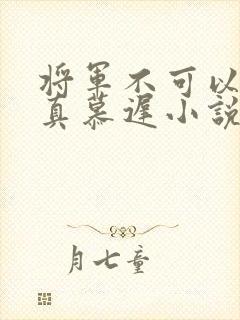 将军不可以
真慕遲小說
月七童